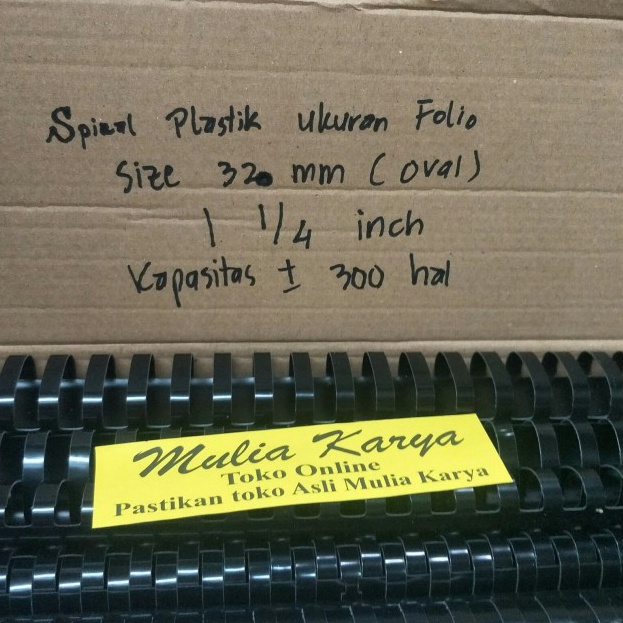 Spiral Plastik ukuran Folio
size 32 mm (oval)
1 1/4 inch
Kapasitas ± 300 hal
Mulia Karya
Toko Online
Pastikan toko Asli Mulia Karya